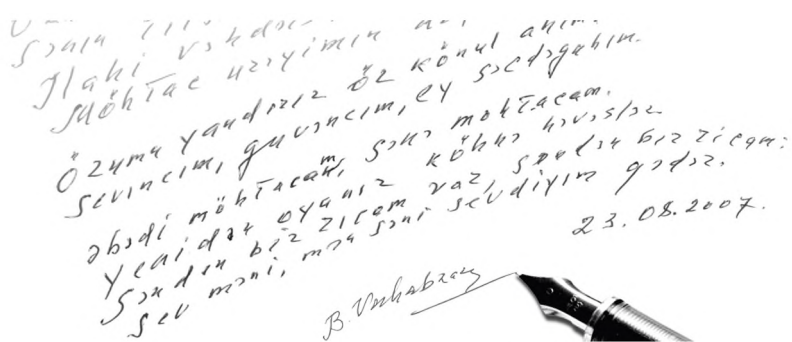 Sənin
İlahi
Möhtac ürəyimin
Özümü yandırır öz könül ahım.
Sevincim, güvəncim, ey səcdəgahım.
Əbədi möhtacam, sənə möhtacam.
Yenidən oyanır köhnə həvəslər
Səndən bir ricam var, səndən bir ricam:
Sev məni, mən səni sevdiyim qədər.
23.08.2007.
B. Vahabzadə